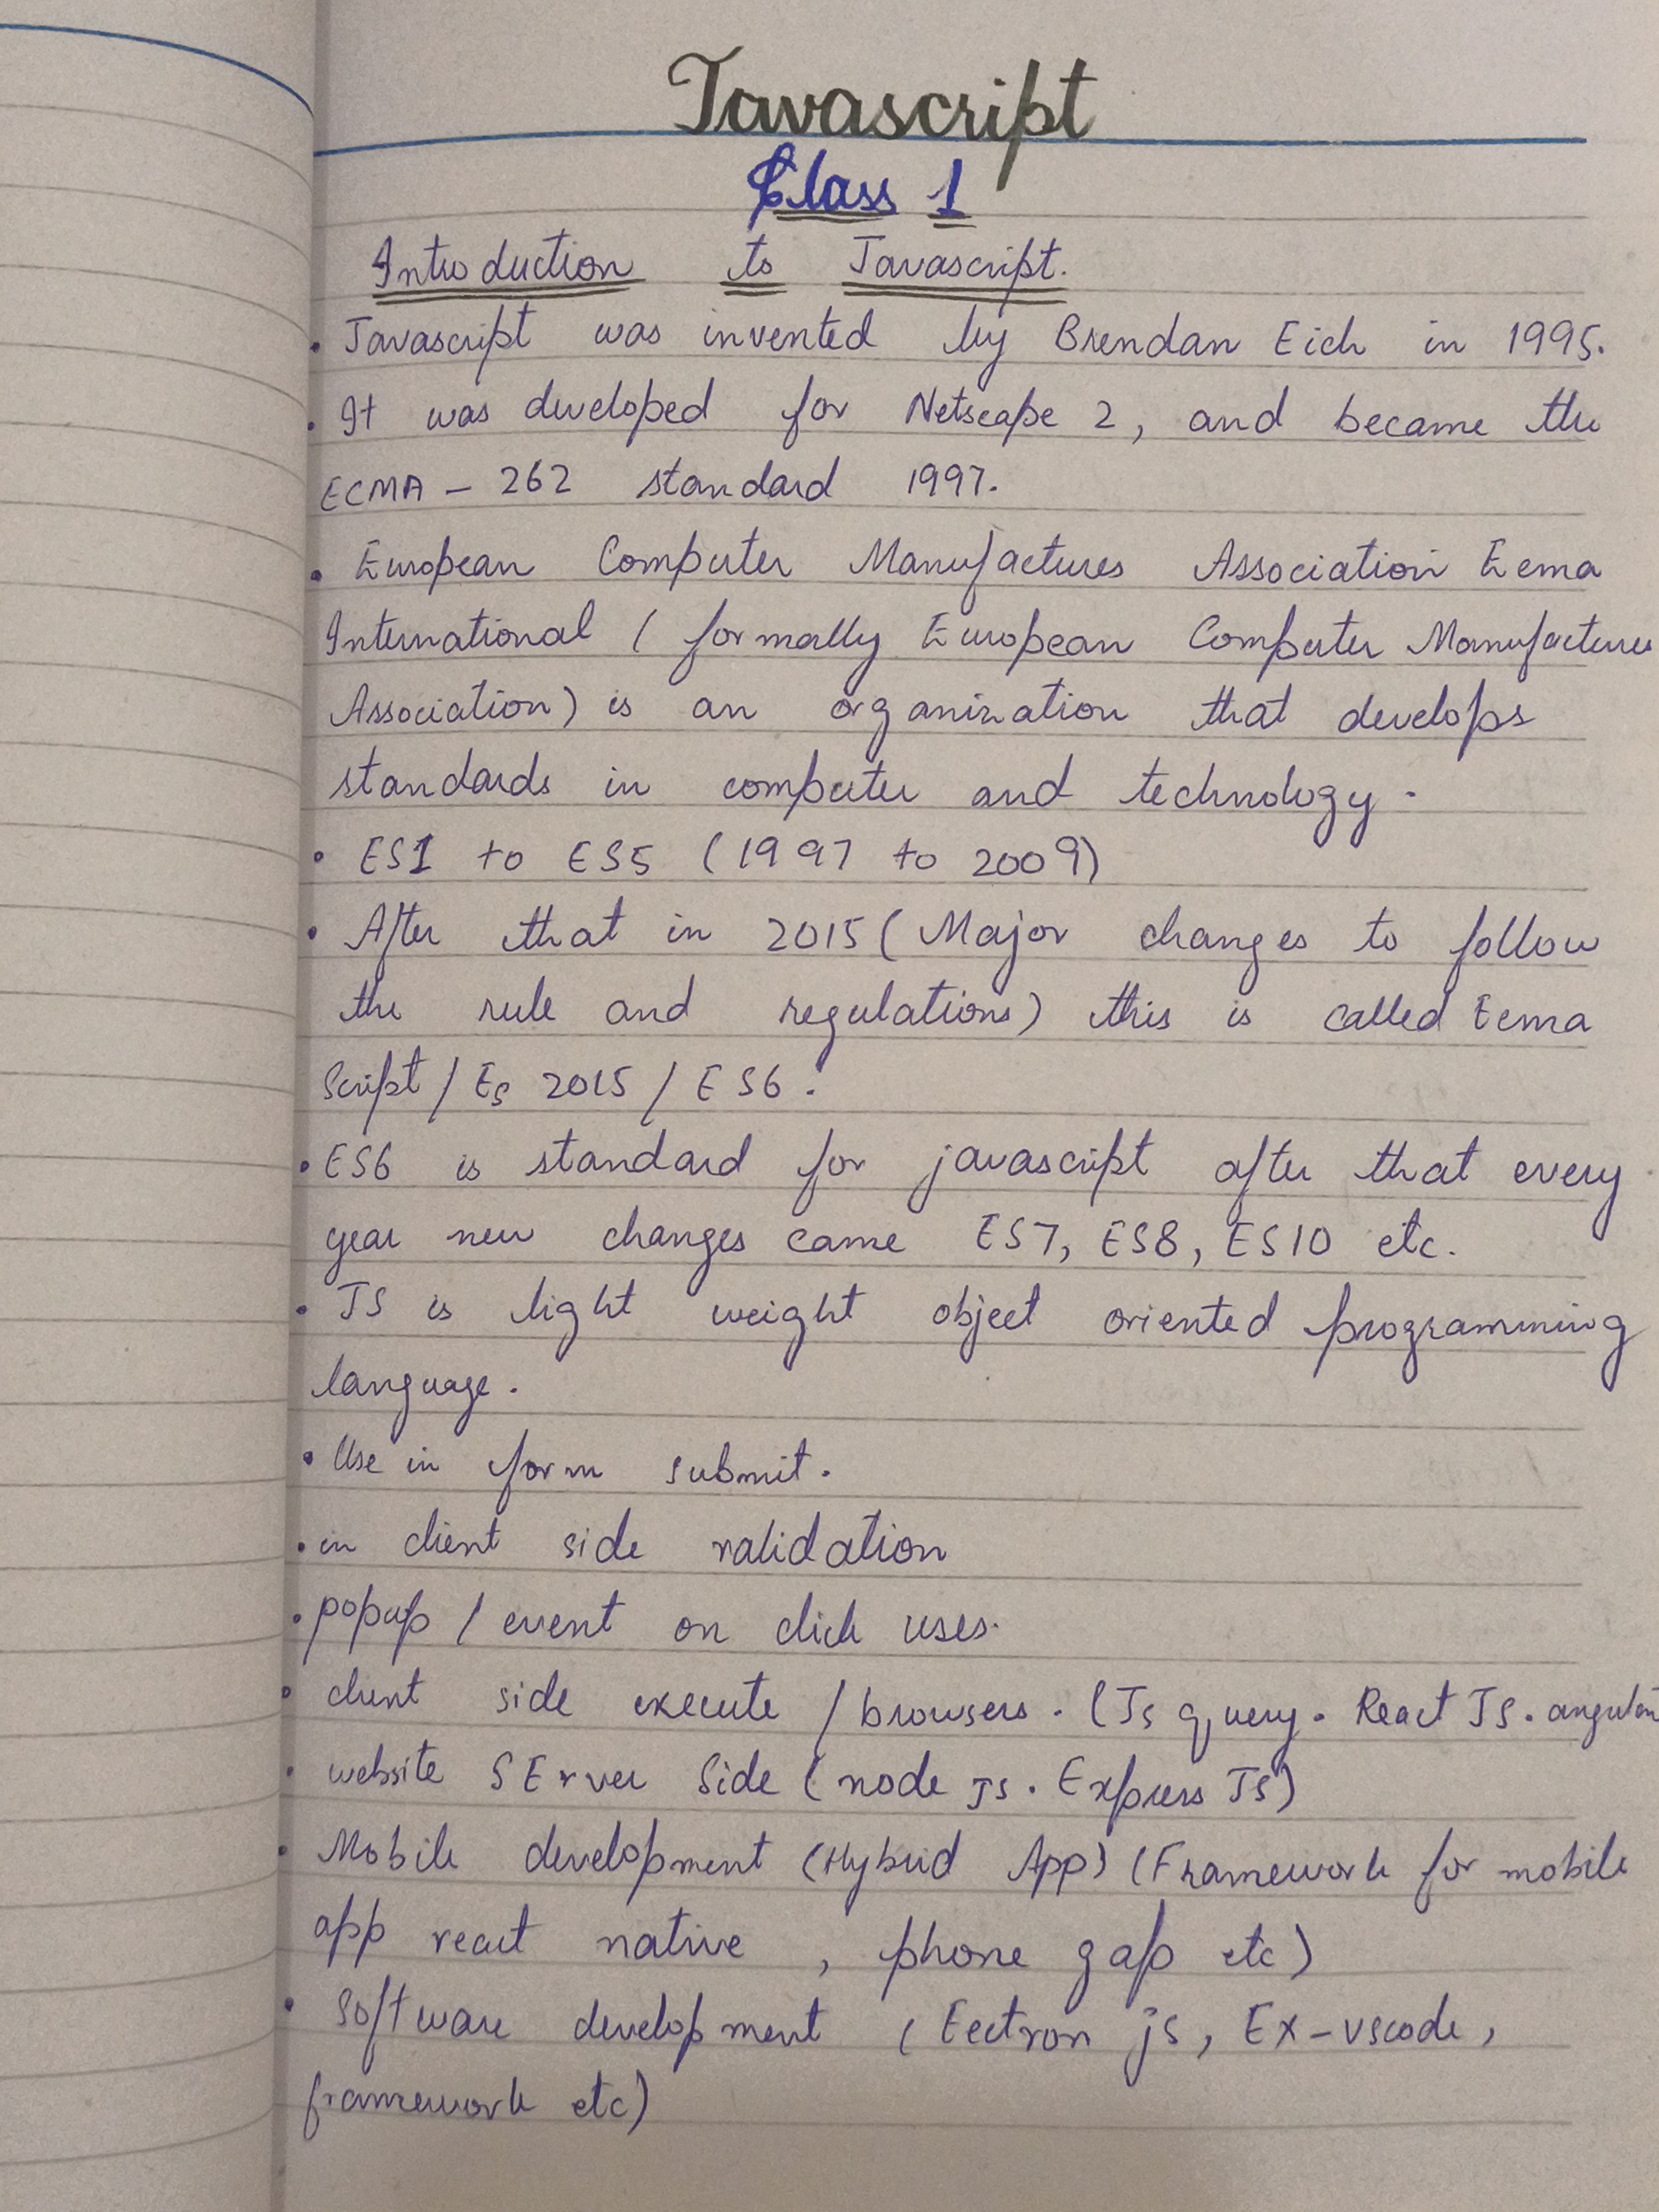 Javascript
Class 1
Introduction to Javascript.
. Javascript was invented by Brendan Eich in 1995.
. It was developed for Netscape 2, and became the
ECMA - 262 standard 1997.
. European Computer Manufactures Association Ecma
International ( formally European Computer Manufactures
Association) is an organization that develops
standards in computer and technology.
• ES1 to ES5 (1997 to 2009)
• After that in 2015 (Major changes to follow
the rule and regulations) this is called Ecma
Script / Es 2015 / ES6.
• ES6 is standard for javascript after that every
year new changes came ES7, ES8, ES10 etc.
• JS is light weight object oriented programming
language.
• Use in form submit.
. in client side validation
. popup / event on click uses.
• client side execute / browsers. (Js query. React JS. angular
• website SErver Side (node JS. Express JS)
• Mobile development (Hybrid App) (Framework for mobile
app react native , phone gap etc)
• Software development ( Eectron js, Ex-vscode,
framework etc)